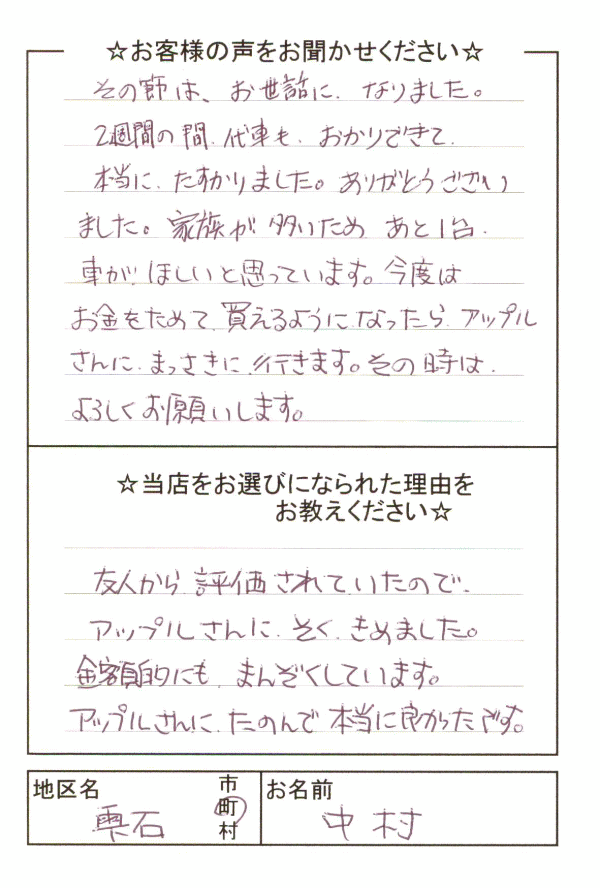 ☆お客様の声をお聞かせください☆
その節は、お世話に、なりました。
2週間の間、代車も、おかりできて、
本当に、たすかりました。ありがとうござい
ました。家族が多いため あと1台、
車が、ほしいと思っています。今度は
お金をためて、買えるようになったら、アップル
さんに、まっさきに、行きます。その時は、
よろしくお願いします。
☆当店をお選びになられた理由を
お教えください☆
友人から、評価されていたので、
アップルさんに、そく、きめました。
金額的にも、まんぞくしています。
アップルさんに、たのんで本当に良かったです。
地区名
雫石
市
町
村
お名前
中村